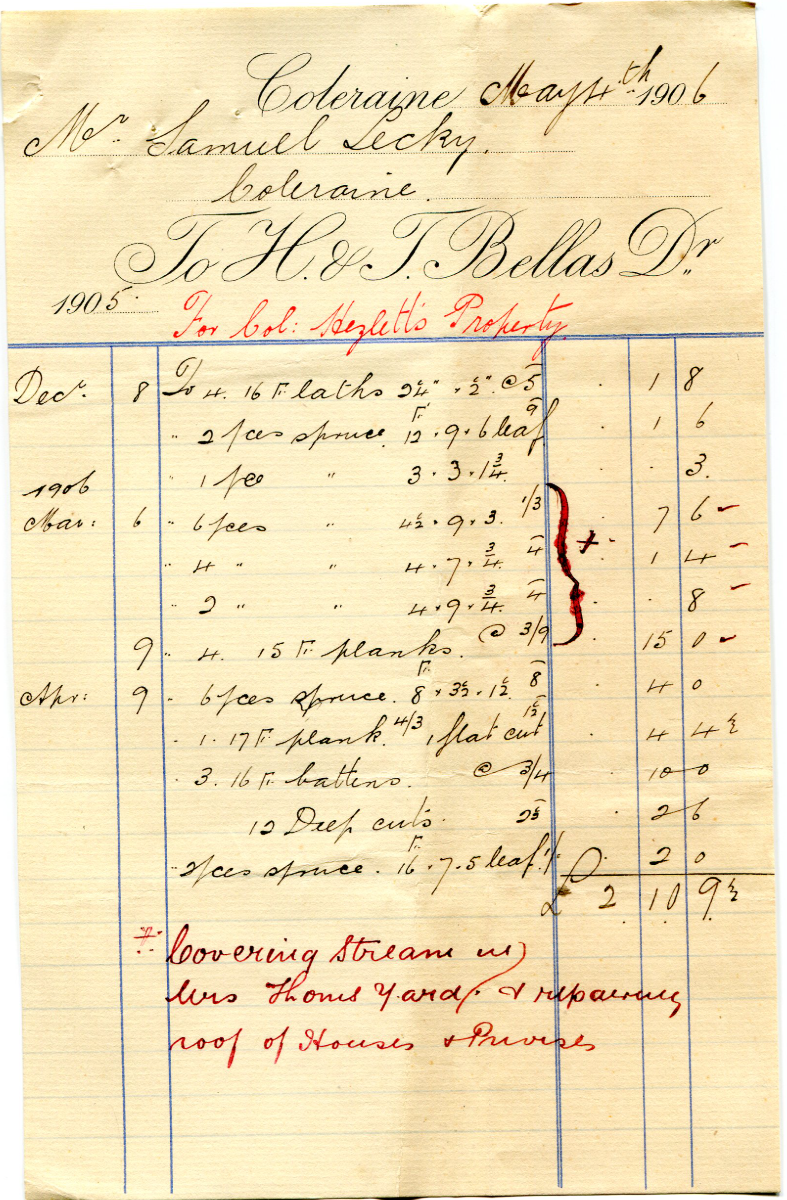 Coleraine May 4th 1906
Mr Samuel Lecky.
Coleraine.
To H. & T. Bellas Dr
1905
For Col: Hezlett's Property
Decr. 8 To 4. 16 Ft laths 2¼" × ½" @ 5 1 8
" 2 pces spruce 12 Ft × 9 × 6 leaf 9 1 6
" 1 pce " 3 × 3 × 1¾ 3
1906
Mar: 6 " 6 pces " 4½ × 9 × 3. 1/3 7 6
" 4 " " 4 × 7 × ¾ 4 1 4
" 2 " " 4 × 9 × ¾ 4 8
9 " 4. 15 Ft planks. @ 3/9 15 0
Apr: 9 " 6 pces spruce. 8 Ft × 3½ × 1½ 8 4 0
" 1. 17 Ft plank. 4/3 1 flat cut 1½ 4 4½
" 3. 16 Ft battens. @ 3/4 10 0
12 Deep cuts. 2½ 2 6
" 2 pces spruce. 16 Ft × 7 × 5 leaf 1/- 2 0
£ 2 10 9½
+ Covering Stream in
Mrs Thoms Yard. & repairing
roof of Houses & Privies